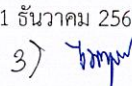 1 ธันวาคม 256
3)